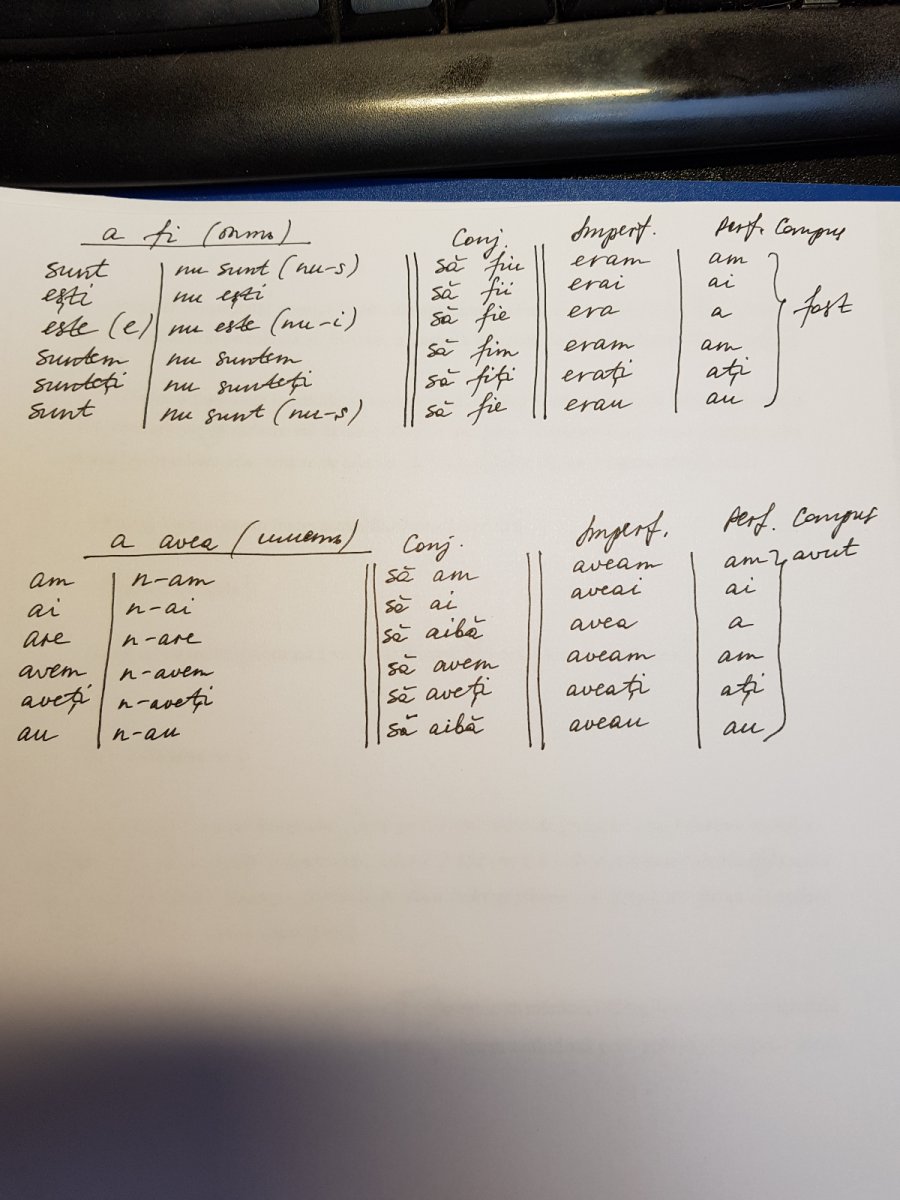 a fi (быть) Conj. Imperf. Perf. Compus
sunt nu sunt (nu-s) să fiu eram am
ești nu ești să fii erai ai
este (e) nu este (nu-i) să fie era a fost
suntem nu suntem să fim eram am
sunteți nu sunteți să fiți erați ați
sunt nu sunt (nu-s) să fie erau au
a avea (иметь) Conj. Imperf. Perf. Compus
am n-am să am aveam am avut
ai n-ai să ai aveai ai
are n-are să aibă avea a
avem n-avem să avem aveam am
aveți n-aveți să aveți aveați ați
au n-au să aibă aveau au